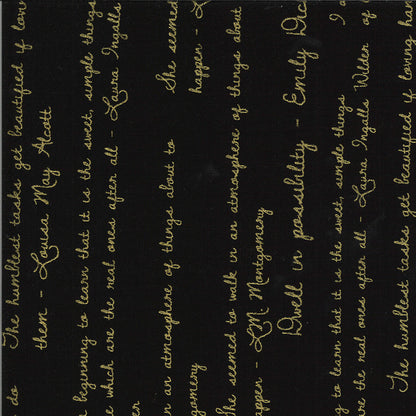 do The humblest tasks get beautified if lovi
them - Louisa May Alcott
beginning to learn that it is the sweet, simple things
e which are the real ones after all - Laura Ingalls
er
n an atmosphere of things about to She seemed
gomery happen - L
She seemed to walk in an atmosphere of things about
ppen - LM Montgomery
Dwell in possibility - Emily Dic
g to learn that it is the sweet, simple things I a
re the real ones after all - Laura Ingalls Wilder of
The humblest tasks get beautified if loving han